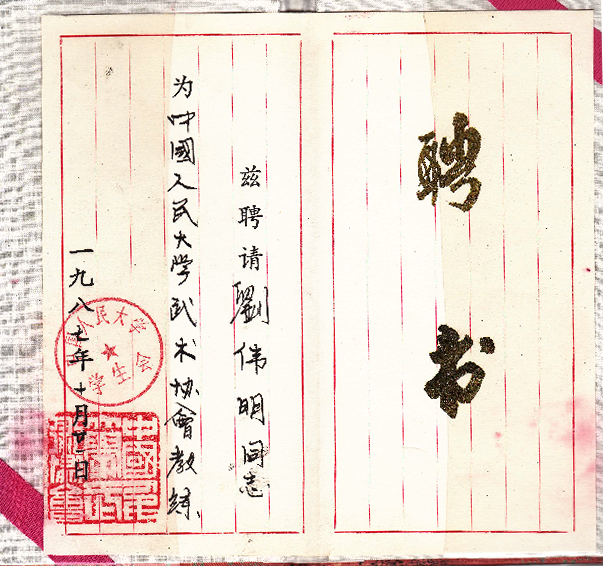 聘书
兹聘请劉伟明同志
为中國人民大学武术协會教練
一九八七年十月廿一日
国人民大学
学生会